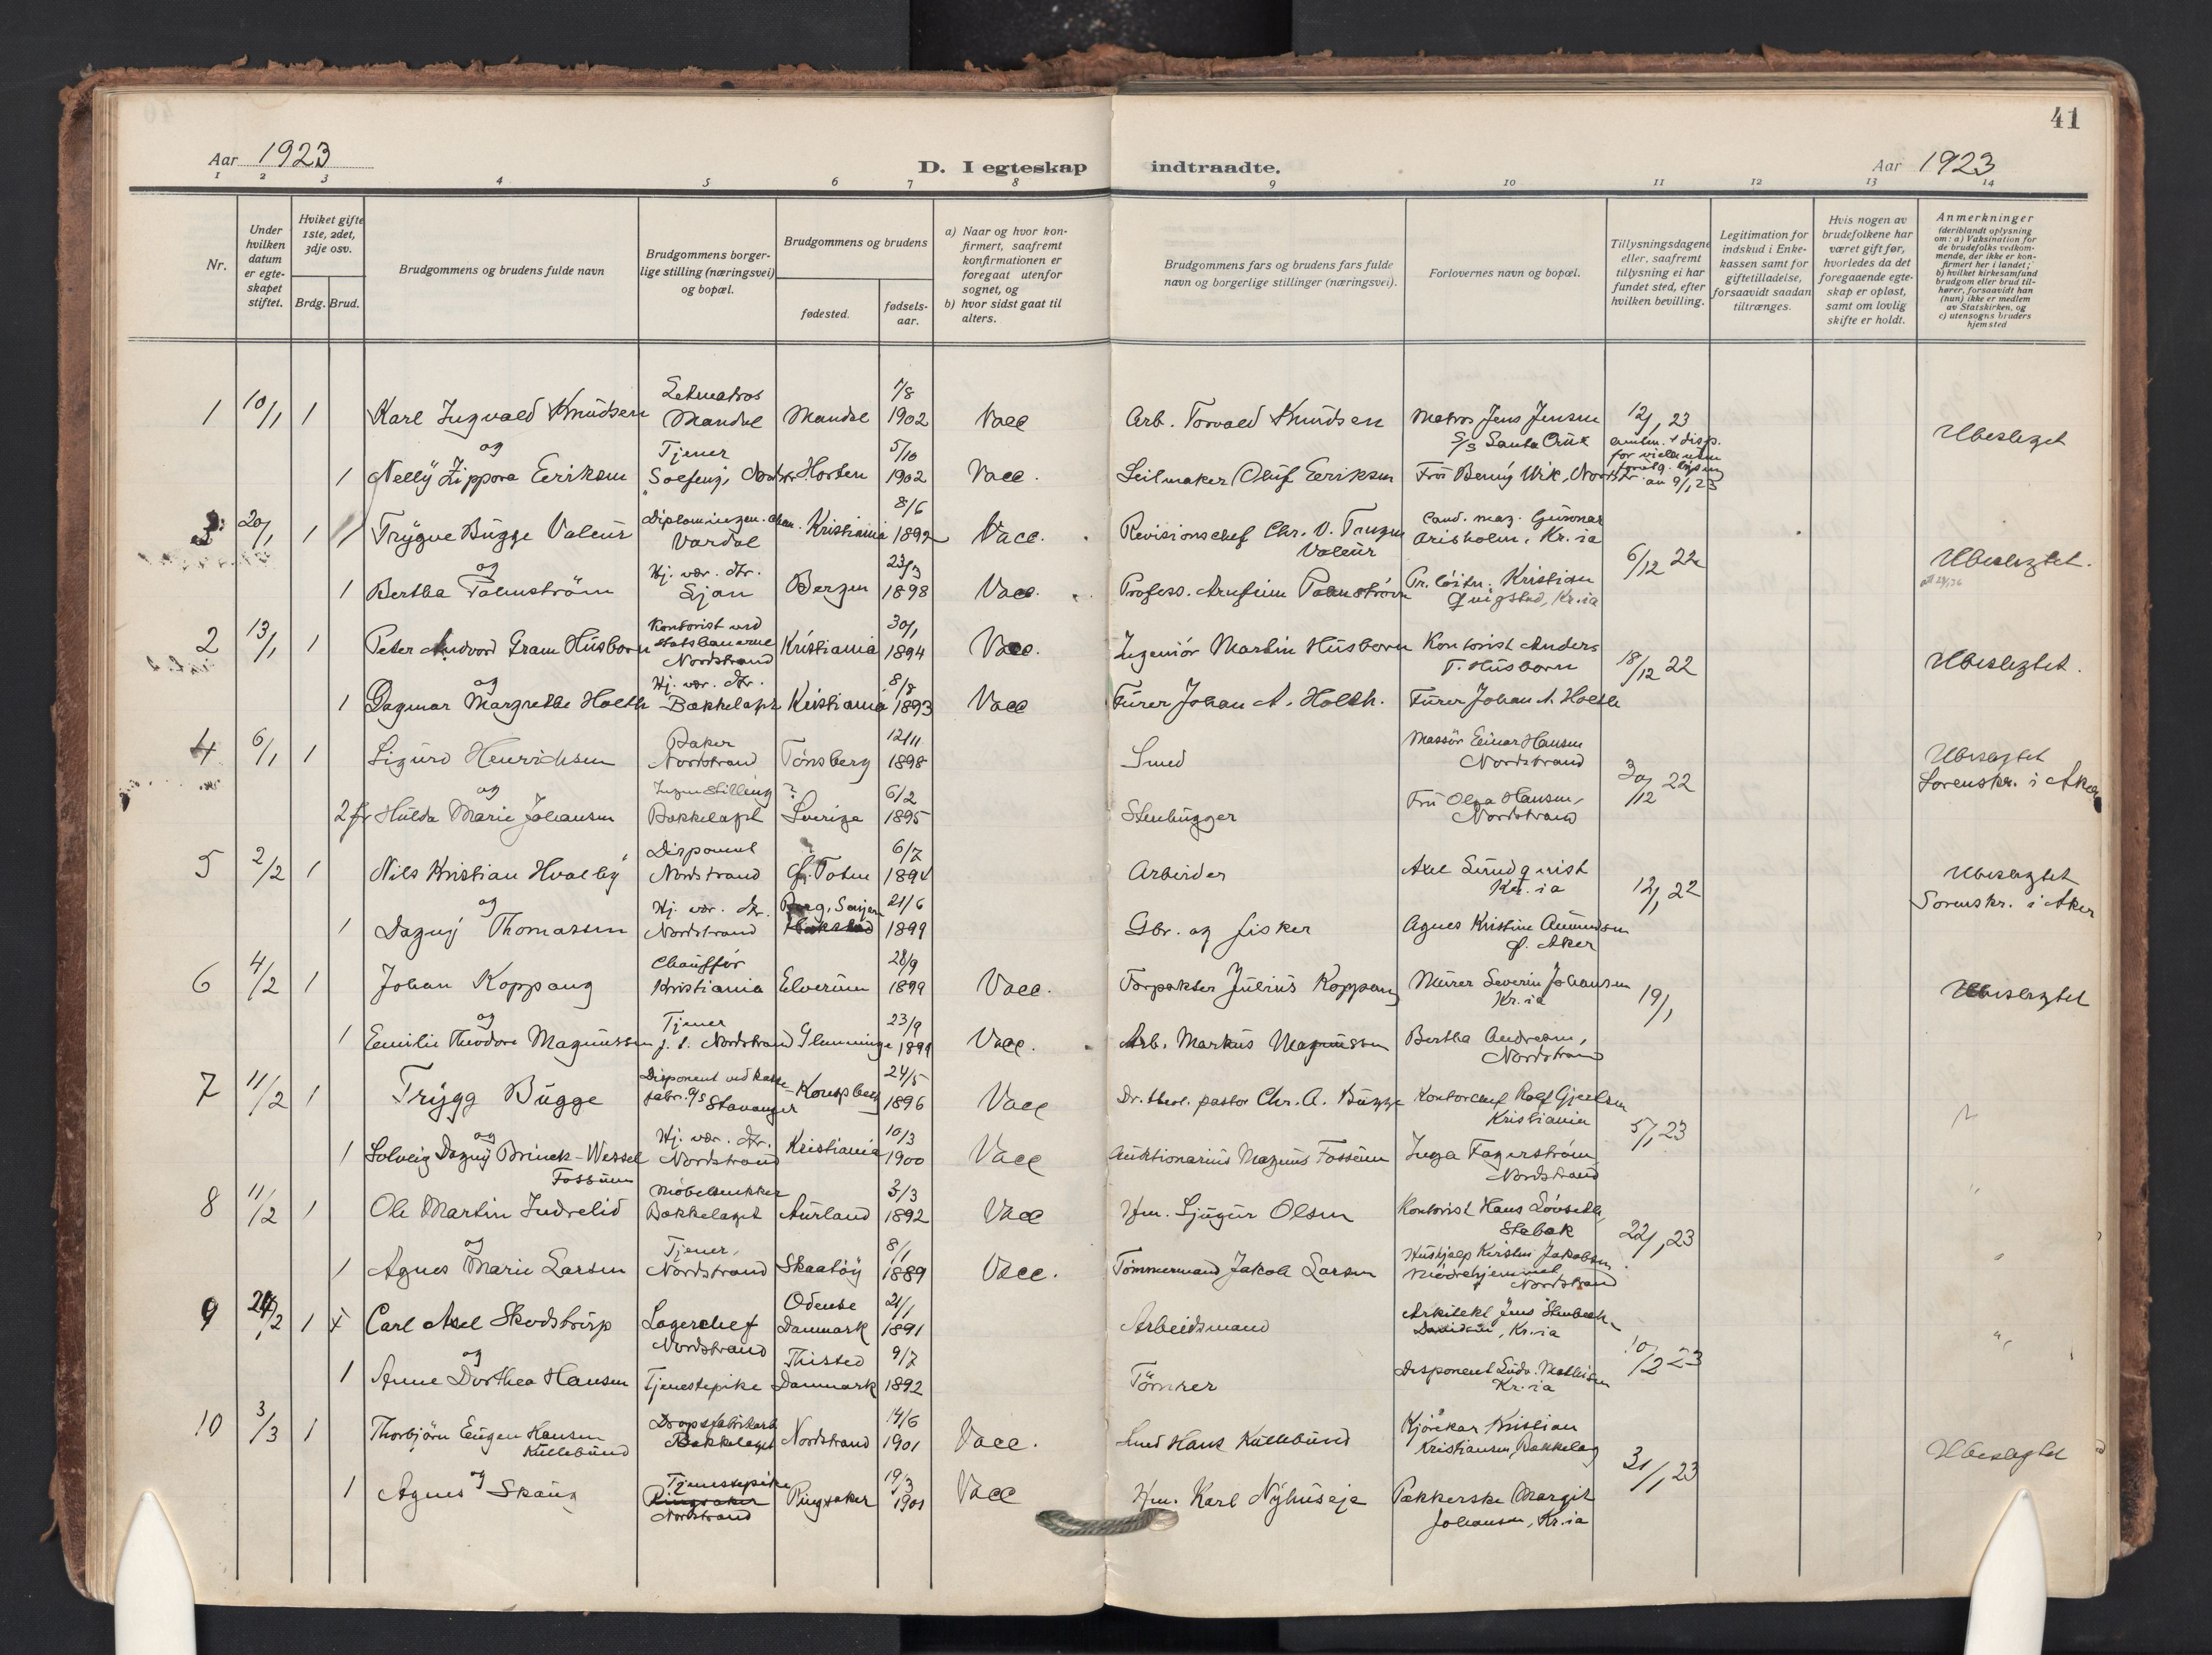 41
Aar 1923
D. I egteskap indtraadte.
Aar 1923
1 2 3 4 5 6 7 8 9 10 11 12 13 14
Nr.
Under hvilken datum er egteskapet stiftet.
Hviket gifte 1ste, 2det, 3dje osv.
Brdg. Brud.
Brudgommens og brudens fulde navn
Brudgommens borgerlige stilling (næringsvei) og bopæl.
Brudgommens og brudens
fødested.
fødselsaar.
a) Naar og hvor konfirmert, saafremt konfirmationen er foregaat utenfor sognet, og
b) hvor sidst gaat til alters.
Brudgommens fars og brudens fars fulde navn og borgerlige stillinger (næringsvei).
Forlovernes navn og bopæl.
Tillysningsdagene eller, saafremt tillysning ei har fundet sted, efter hvilken bevilling.
Legitimation for indskud i Enkekassen samt for giftetilladelse, forsaavidt saadan tiltrænges.
Hvis nogen av brudefolkene har været gift før, hvorledes da det foregaaende egteskap er opløst, samt om lovlig skifte er holdt.
Anmerkninger (deriblandt oplysning om: a) Vaksination for de brudefolks vedkommende, der ikke er konfirmert her i landet; b) hvilket kirkesamfund brudgom eller brud tilhører, forsaavidt han (hun) ikke er medlem av Statskirken, og c) utensogns bruders hjemsted
1 10/1 1 Karl Ingvald Knudsen Letmatros Mandal Mandal 7/8 1902 Vacc Arb. Torvald Knudsen Matros Jens Jensen S/S Santa Cruz 12/1 23 Ubeslegtet
og
1 Nelly Zippora Eriksen Tjener Solfeng, Nordstr. Horten 5/10 1902 Vacc. Seilmaker Oluf Eriksen Frk Benny Wik, Nordstr.
3 20/1 1 Trygve Bugge Valeur Diplomingen. Vardal Kristiania 8/6 1892 Vacc. Revisionschef Chr. V. Valeur Cand. mag. Gunnar Arisholm, Kr.ia 6/12 22 Ubeslegtet.
og
1 Bertha Palmström Hj. vær. dtr. Ljan Bergen 23/3 1898 Vacc. Profess. Arnfinn Palmström Pr. løitn. Kristian Qvigstad, Kr.ia
2 13/1 1 Peter Andvord Gram Husborn Kontorist ved statsbanerne Nordstrand Kristiania 30/1 1894 Vacc. Ingeniör Martin Husborn Kontorist Anders T. Husborn 18/12 22 Ubeslegtet.
og
1 Dagmar Margrethe Holth Hj. vær. dtr. Bækkelaget Kristiania 8/8 1893 Vacc Furer Johan A. Holth. Furer Johan A. Holth
4 6/1 1 Sigurd Henrichsen Baker Nordstrand Tönsberg 12/11 1898 Smed Massör Einar Hansen Nordstrand 30/12 22 Ubeslegtet Sorenskr. i Aker
og
2 fr Hulda Marie Johansen Ingen stilling Bækkelaget ? Sverige 6/2 1895 Stenhugger Fru Olga Hansen, Nordstrand
5 2/2 1 Nils Kristian Hvalby Disponent Nordstrand Ø. Toten 6/7 1894 Arbeider Axel Lundqvist Kr.ia 12/1 22 Ubeslegtet Sorenskr. i Aker
og
1 Dagny Thomassen Hj. vær. dtr. Nordstrand 21/6 1899 Gbr. og fisker Agnes Kristine Amundsen Ø. Aker
6 4/2 1 Johan Koppang Chauffør Kristiania Elverum 28/9 1899 Vacc. Forpakter Julius Koppang Murer Severin Johansen Kr.ia 19/1 Ubeslegtet
og
1 Emilie Theodora Magnussen Tjener Nordstrand Glemminge 23/9 1899 Vacc. Arb. Markus Magnussen Bertha Andresen, Nordstrand
7 11/2 1 Trygg Bugge Disponent ved fabr. A/S Stavanger Kongsberg 24/5 1896 Vacc Dr. theol. pastor Chr. A. Bugge Kontorchef Rolf Gjelsen Kristiania 5/1 23
og
1 Solveig Dagny Brinck-Wessel Fossum Hj. vær. dtr. Nordstrand Kristiania 10/3 1900 Vacc Auktionarius Magnus Fossum Inga Fagerström Nordstrand
8 11/2 1 Ole Martin Indrelid Møbelsnekker Bækkelaget Aurland 3/3 1892 Vacc Hm. Ljugur Olsen Kontorist Hans Lövseth, Stabæk 22/1 23 "
og
1 Agnes Marie Larsen Tjener, Nordstrand Skaatöy 8/1 1889 Vacc. Tömmermand Jakob Larsen Hushjælp Kirsten Jakobsen Mödrehjemmet Nordstrand "
9 24/2 1 Carl Axel Skodstrup Lagerchef Nordstrand Odense Danmark 21/1 1891 Arbeidsmand Arkitekt Jens Davidsen, Kr.ia 10/2 23 "
og
1 Anne Dorthea Hansen Tjenestepike Thisted Danmark 9/7 1892 Tömrer Disponent Ludv. Mathisen Kr.ia
10 3/3 1 Thorbjörn Eugen Hansen Kullebund Dropsfabrikarb. Bækkelaget Nordstrand 14/6 1901 Vacc. Smed Hans Kullebund Kjörekar Kristian Kristiansen, Bækkelag 31/1 23 Ubeslegtet
og
1 Agnes Skaug Tjenestepike Ringsaker Nordstrand Ringsaker 19/3 1901 Vacc Hm. Karl Nyhuseje Pakkerske Margit Johansen, Kr.ia